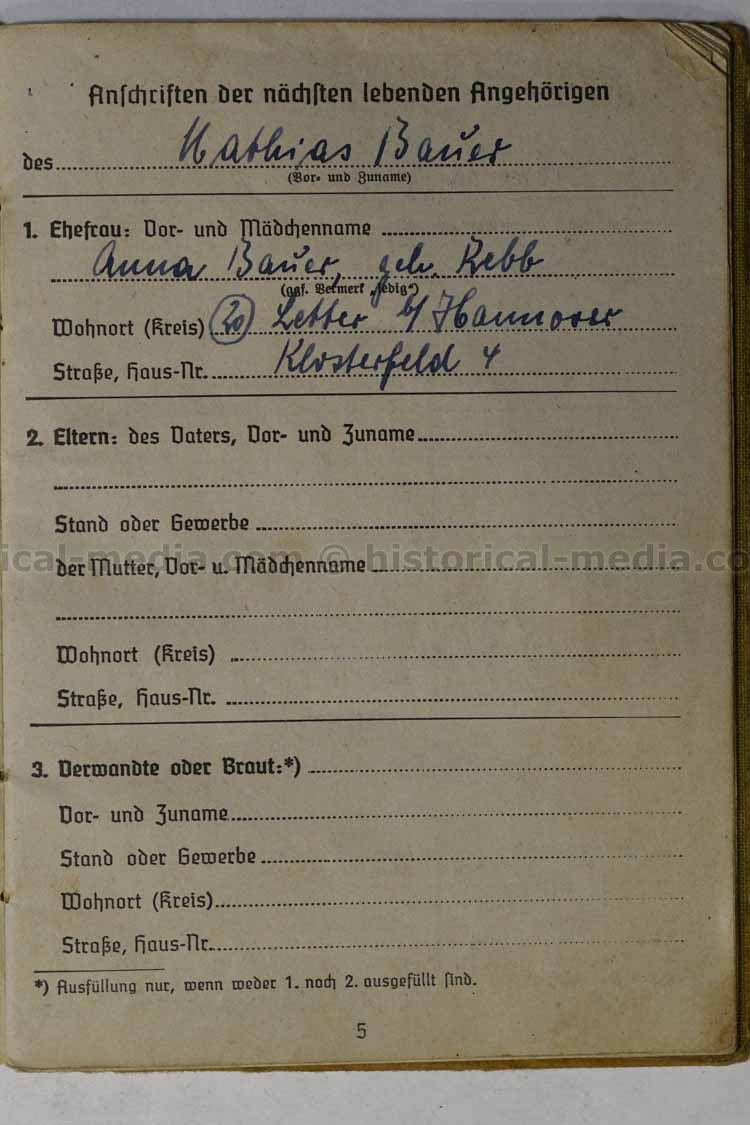 Anschriften der nächsten lebenden Angehörigen
des Mathias Bauer
(Vor- und Zuname)
1. Ehefrau: Vor- und Mädchenname
Anna Bauer, geb. Rebb
(ggf. Vermerk „ledig“)
Wohnort (Kreis) 20 Letter b/Hannover
Straße, Haus-Nr. Klosterfeld 4
2. Eltern: des Vaters, Vor- und Zuname
Stand oder Gewerbe
historical-media.com © historical-media.co
der Mutter, Vor- u. Mädchenname
Wohnort (Kreis)
Straße, Haus-Nr.
3. Verwandte oder Braut:*)
Vor- und Zuname
Stand oder Gewerbe
Wohnort (Kreis)
Straße, Haus-Nr.
*) Ausfüllung nur, wenn weder 1. noch 2. ausgefüllt sind.
5